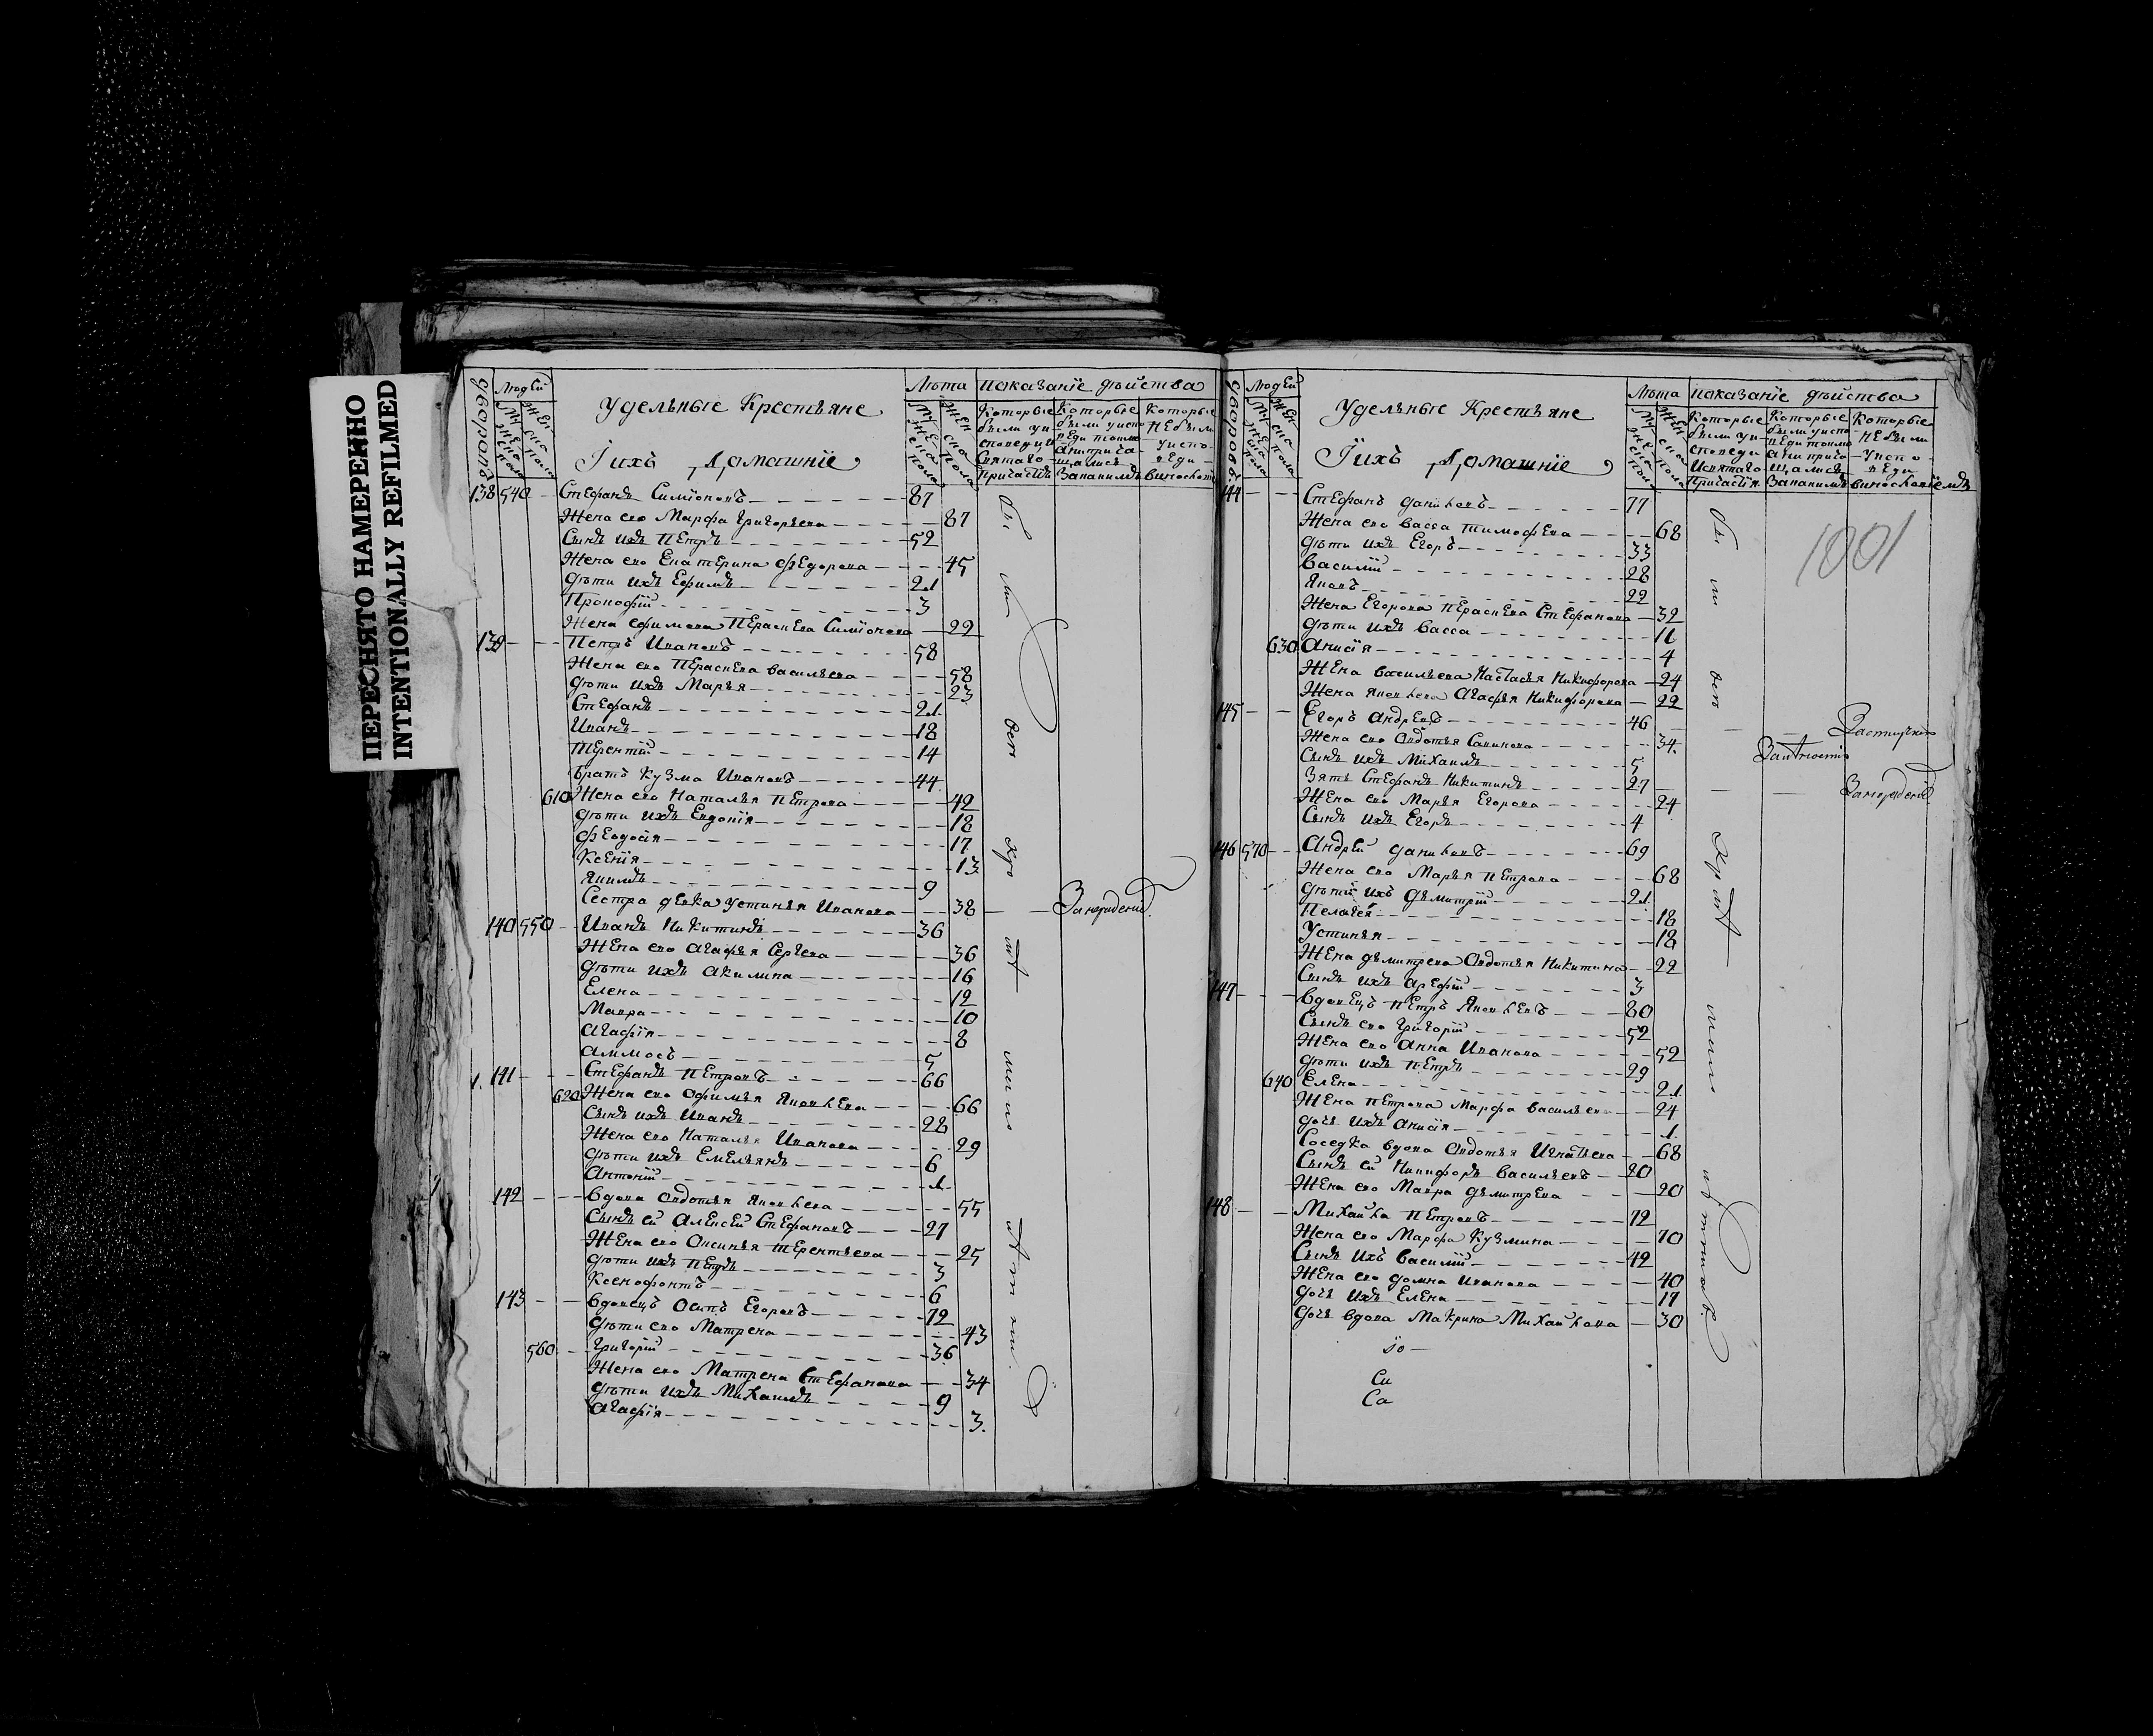 ПЕРЕСНЯТО НАМЕРЕННО
INTENTIONALLY REFILMED
Людей
Лѣта показаніе дѣйства
Удельные Крестьяне
Іихъ Домашніе
138 540 Стефанъ Симіоновъ 87
Жена его Марфа Григорьева 87
Сынъ ихъ Петръ 52
Жена его Екатерина Федорова 45
дѣти ихъ Ефимъ 21
Прокофій 3
Жена ефимова Параскева Симіонова 22
139 Петръ Ивановъ 58
Жена его Параскева васильева 58
дѣти ихъ Марья 23
Стефанъ 21
Иванъ 18
терентій 14
братъ Кузма Ивановъ 44
610 Жена его Наталья Петрова 42
дѣти ихъ Евдокія 18
Феодосія 17
Ксенія 13
Якимъ 9
Сестра девка устинья Иванова 38
140 550 Иванъ Никитинъ 36
Жена его агафья Сергева 36
дѣти ихъ акилина 16
Елена 12
Мавра 10
агафія 8
аммосъ 5
141 Стефанъ Петровъ 66
620 Жена его Офимья Яковлева 66
Сынъ ихъ Иванъ 28
Жена его Наталья Иванова 29
дѣти ихъ Емельянъ 6
Антоній 1
142 вдова Овдотья Яковлева 55
Сынъ ей Алексей Стефановъ 27
Жена его Оксинья терентьева 25
дѣти ихъ Петръ 3
Ксенофонтъ 6
143 вдовецъ Осипъ Егоровъ 72
дѣти его Матрена 43
560 Григорій 36
Жена его Матрена Стефанова 34
дѣти ихъ Михаилъ 9
агафія 3
Людей
Лѣта показаніе дѣйства
Удельные Крестьяне
Іихъ Домашніе
1001
144 Стефанъ даниловъ 77
Жена его васса тимофева 68
дѣти ихъ Егоръ 33
василій 28
Яковъ 22
Жена Егорова Параскева Стефанова 32
дѣти ихъ васса 11
630 Анисія 4
Жена васильева Настасья Никифорова 24
Жена Яковлева агафья Никифорова 22
145 Егоръ андреевъ 46
Жена его Овдотья Савинова 34
Сынъ ихъ Михаилъ 5
Зять Стефанъ Никитинъ 27
Жена его Марья Егорова 24
Сынъ ихъ Егоръ 4
146 570 Андрей даниловъ 69
Жена его Марья Петрова 68
дѣти ихъ дьмитрій 21
Пелагея 18
Устинья 18
Жена дьмитрева Овдотья Никитина 22
Сынъ ихъ арефій 3
147 вдовецъ Петръ Яковлевъ 80
Сынъ его Григорій 52
Жена его анна Иванова 52
дѣти ихъ Петръ 29
640 Елена 21
Жена Петрова Марфа васильева 24
дочь ихъ анисія 1
Соседка вдова Овдотья Игнатьева 68
Сынъ ей Никифоръ васильевъ 20
Жена его Мавра дьмитрева 20
148 Михайла Петровъ 72
Жена его Марфа Кузмина 70
Сынъ ихъ василій 42
Жена его домна Иванова 40
дочь ихъ Елена 17
дочь вдова Макрина Михайлова 30